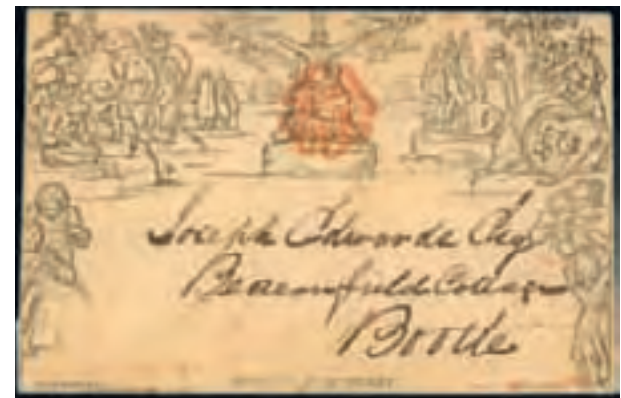 Joseph Edwards Esq
Beaconsfield Cottage
Bootle